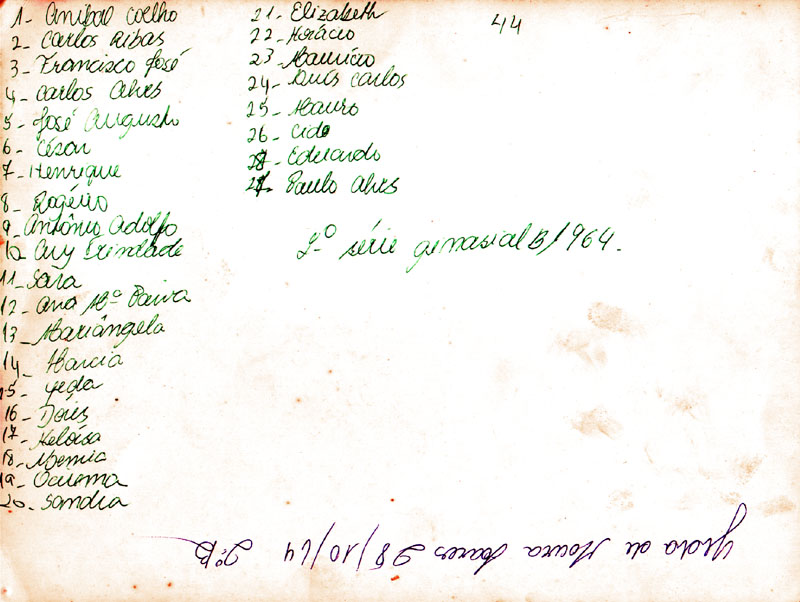 1- Anibal Coelho
2- Carlos Ribas
3- Francisco José
4- Carlos Alves
5- José Augusto
6- César
7- Henrique
8- Rogério
9- Antônio Adolfo
10- Ary Trindade
11- Sara
12- Ana Mª Paiva
13- Mariângela
14- Marcia
15- Yeda
16- Dóris
17- Heloísa
18- Noemia
19- Iracema
20- Sandra
21- Elizabeth
22- Horácio
23- Maurício
24- Luis Carlos
25- Mauro
26- Cid
28- Eduardo
27- Paulo Alves
44
2º série ginasial B/1964.
de Moura Soares 28/10/64 2ºB